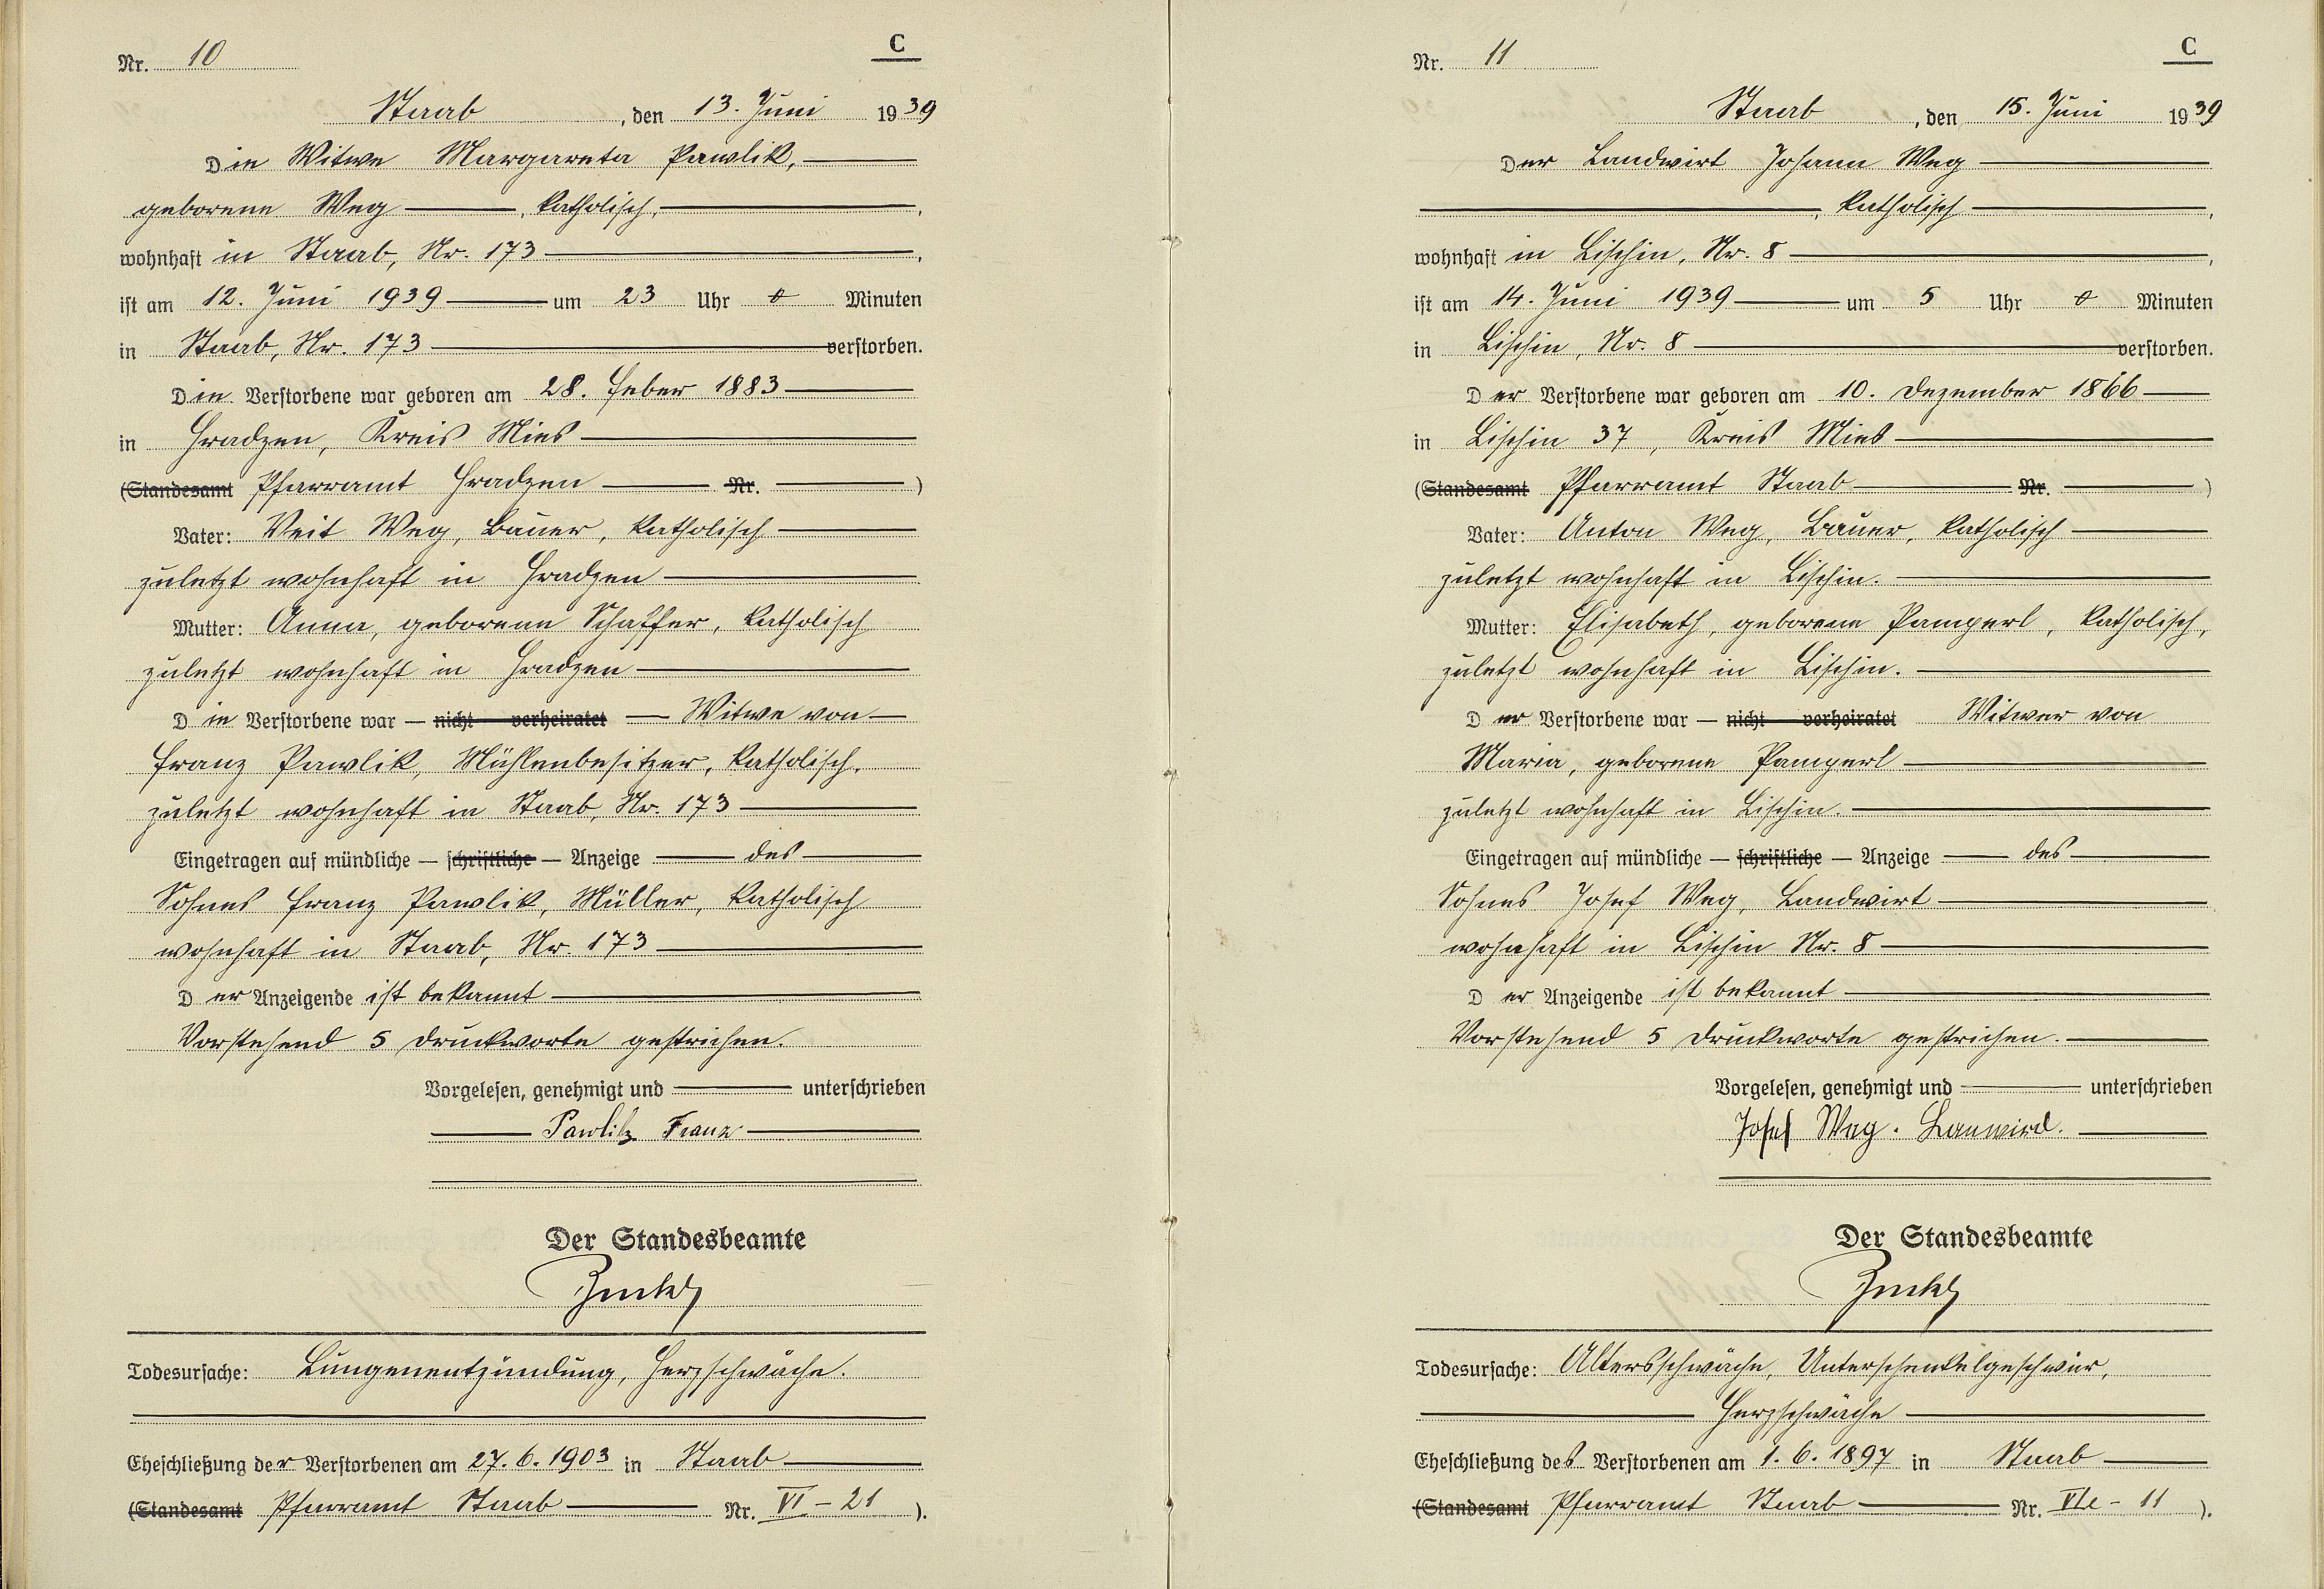 Nr. 10
C
Staab, den 13. Juni 1939
Die Witwe Margareta Pawlik,
geborene Weg, katholisch,
wohnhaft in Staab, Nr. 173,
ist am 12. Juni 1939 um 23 Uhr 0 Minuten
in Staab, Nr. 173 verstorben.
Die Verstorbene war geboren am 28. Feber 1883
in Hradzen, Kreis Mies
(Standesamt Pfarramt Hradzen Nr. )
Vater: Veit Weg, Bauer, katholisch
zuletzt wohnhaft in Hradzen
Mutter: Anna, geborene Schaffer, katholisch
zuletzt wohnhaft in Hradzen
Die Verstorbene war — nicht verheiratet — Witwe von
Franz Pawlik, Mühlenbesitzer, katholisch,
zuletzt wohnhaft in Staab, Nr. 173
Eingetragen auf mündliche — schriftliche — Anzeige des
Sohnes Franz Pawlik, Müller, katholisch
wohnhaft in Staab, Nr. 173
Der Anzeigende ist bekannt
Vorstehend 5 Druckworte gestrichen.
Vorgelesen, genehmigt und unterschrieben
Pawlik Franz
Der Standesbeamte
Todesursache: Lungenentzündung, Herzschwäche.
Eheschließung der Verstorbenen am 27. 6. 1903 in Staab
(Standesamt Pfarramt Staab Nr. VI - 21 ).
Nr. 11
C
Staab, den 15. Juni 1939
Der Landwirt Johann Weg
, katholisch,
wohnhaft in Lischin, Nr. 8,
ist am 14. Juni 1939 um 5 Uhr 0 Minuten
in Lischin, Nr. 8 verstorben.
Der Verstorbene war geboren am 10. Dezember 1866
in Lischin 37, Kreis Mies
(Standesamt Pfarramt Staab Nr. )
Vater: Anton Weg, Bauer, katholisch
zuletzt wohnhaft in Lischin.
Mutter: Elisabeth, geborene Pamperl, katholisch,
zuletzt wohnhaft in Lischin.
Der Verstorbene war — nicht verheiratet Witwer von
Maria, geborene Pamperl
zuletzt wohnhaft in Lischin.
Eingetragen auf mündliche — schriftliche — Anzeige des
Sohnes Josef Weg, Landwirt
wohnhaft in Lischin Nr. 8
Der Anzeigende ist bekannt
Vorstehend 5 Druckworte gestrichen.
Vorgelesen, genehmigt und unterschrieben
Josef Weg. Lanwird.
Der Standesbeamte
Todesursache: Altersschwäche, Unterschenkelgeschwür,
Herzschwäche
Eheschließung des Verstorbenen am 1. 6. 1897 in Staab
(Standesamt Pfarramt Staab Nr. VIe - 11 ).